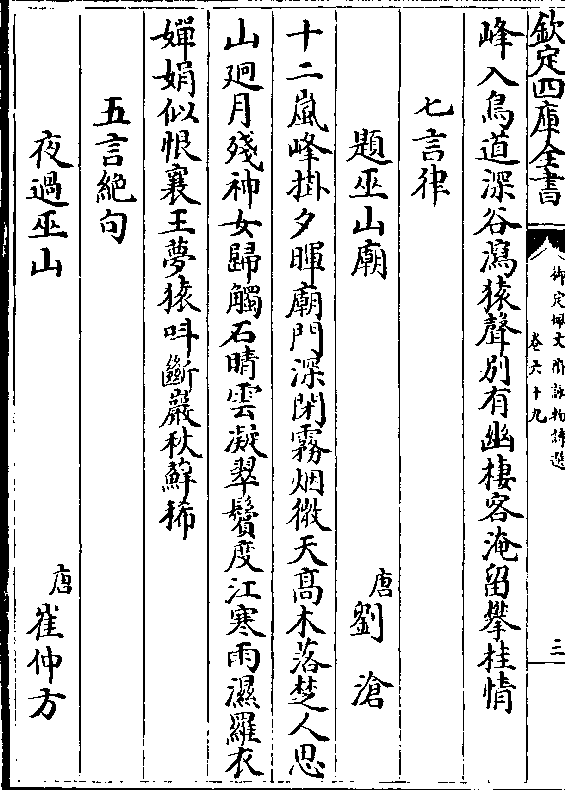 欽定四庫全書
御定佩文齋詠物詩選
卷六十九
三
峰入鳥道深谷瀉猿聲別有幽棲客淹留攀桂情
七言律
題巫山廟
唐劉滄
十二嵐峰掛夕暉廟門深閉霧烟微天高木落楚人思
山廻月殘神女歸觸石晴雲凝翠鬢度江寒雨濕羅衣
嬋娟似恨襄王夢猿呌斷巖秋蘚稀
五言絶句
夜過巫山
唐崔仲方